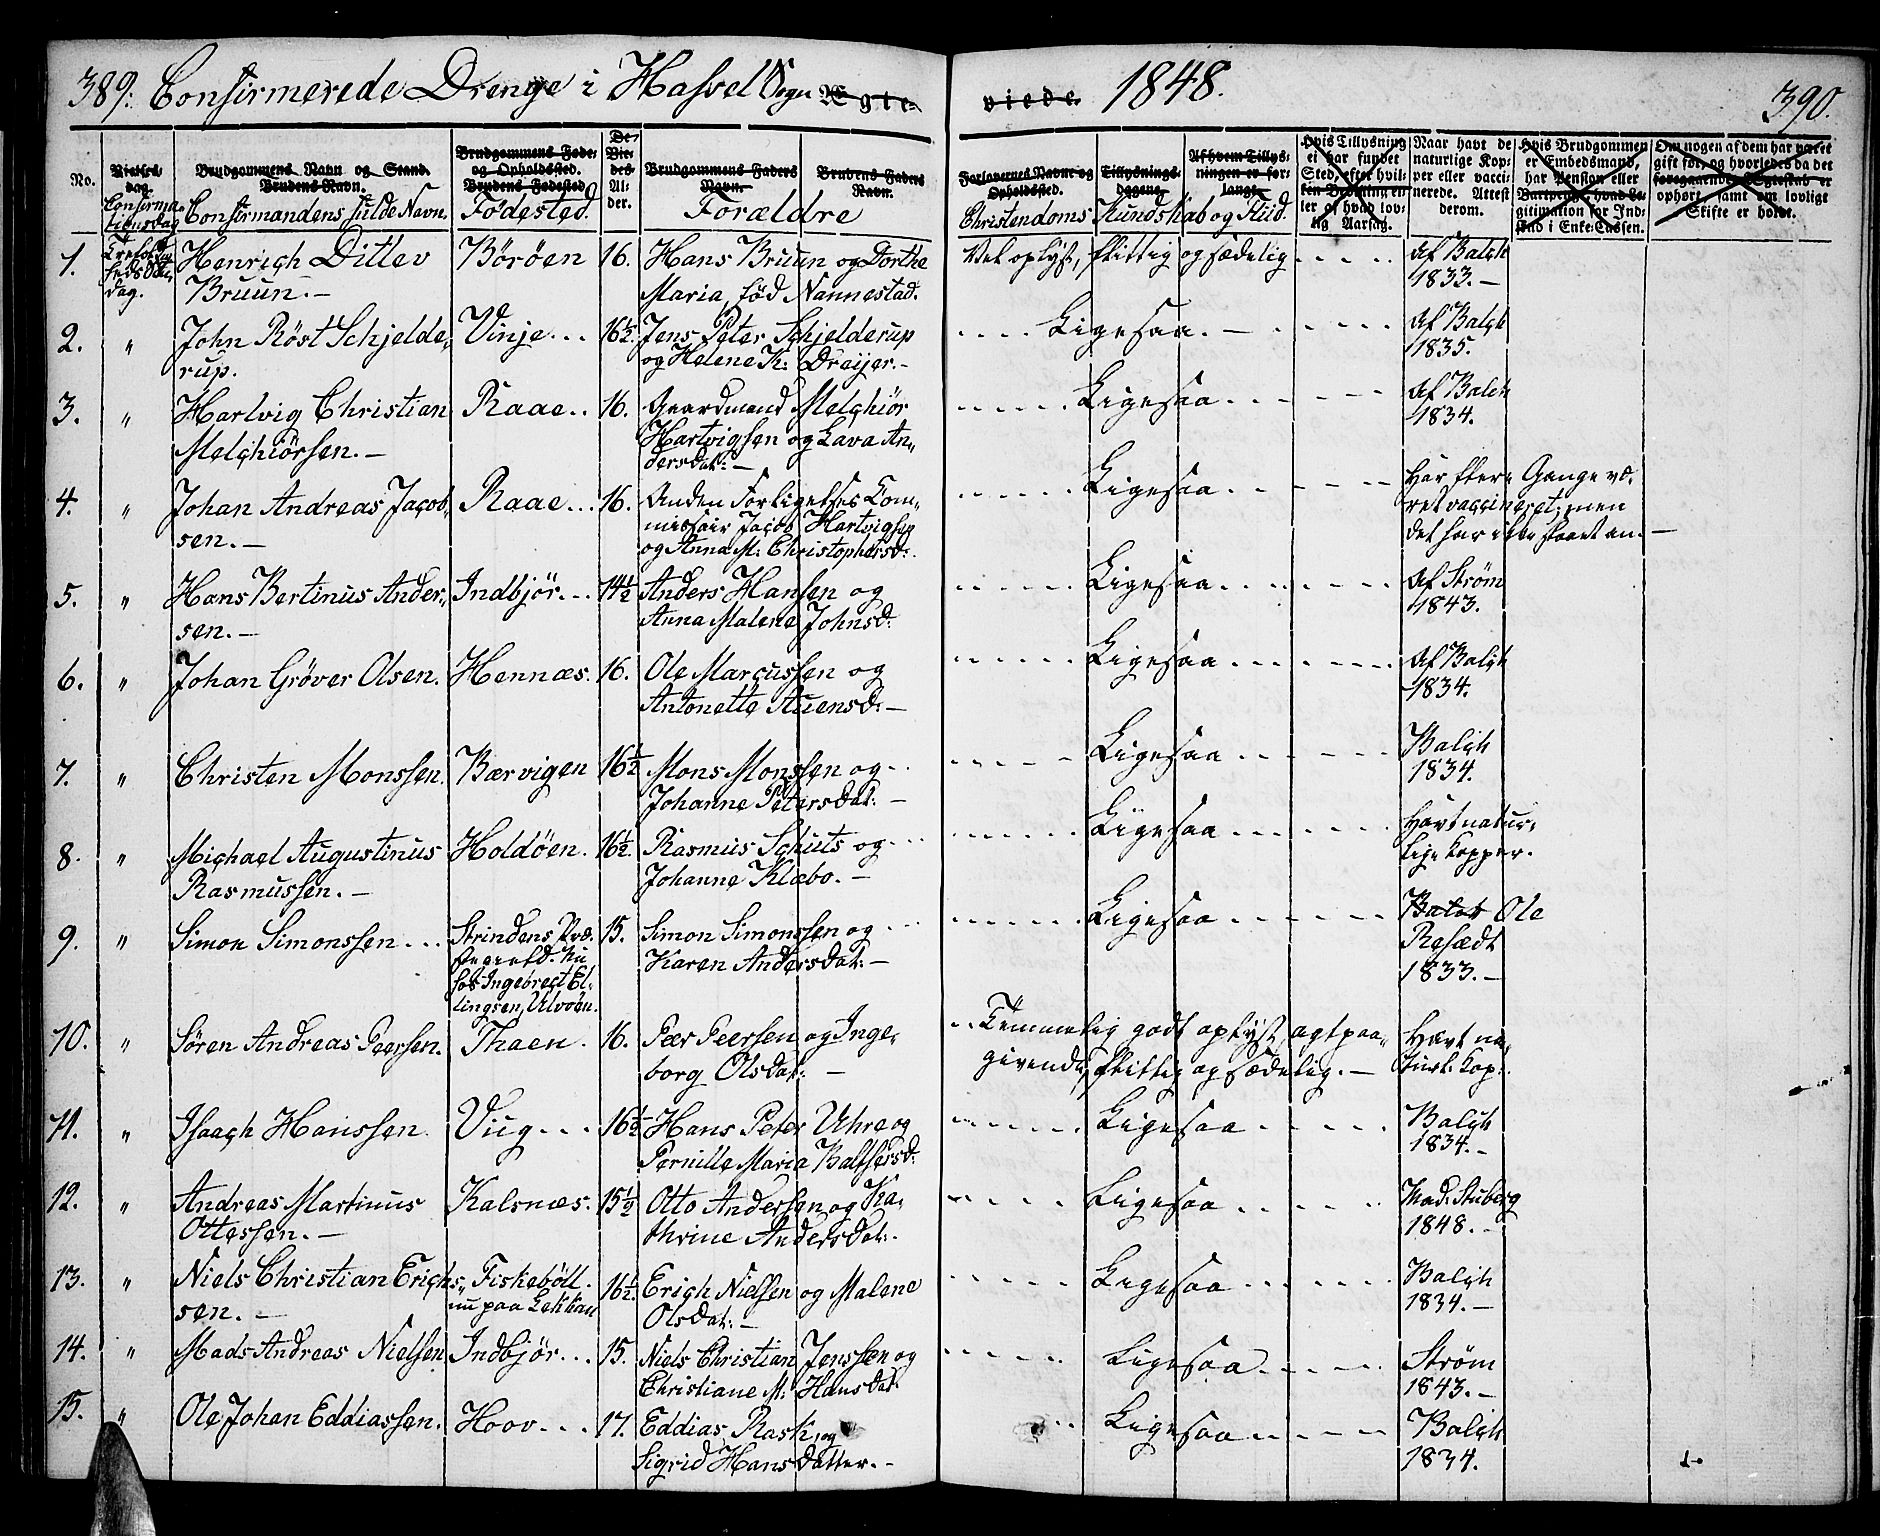 389. Confirmerede Drenge i Hassel Sogn Ægte-
viede. 1848. 390.
No.
Vielses-
dag.
Confirma-
tionsdag
Brudgommens Navn og Stand.
Brudens Navn.
Confirmandens fulde Navn.
Brudgommens Føde-
og Opholdssted.
Brudens Fødested
Fødested.
De
Vie-
des
Al-
der.
Brudgommens Faders
Navn.
Brudens Faders
Navn.
Forældre
Forlovernes Navne og
Opholdssted.
Tillysnings-
dagene.
Af hvem Tillys-
ningen er for-
langt.
Christendoms Kundskab og Flid.
Hvis Tillysning
ei har fundet
Sted, efter hvil-
ken Bevilling el-
ler af hvad lov-
lig Aarsag.
Naar havt de
naturlige Kop-
per eller vacci-
nerede. Attest
derom.
Hvis Brudgommen
er Embedsmand,
har Pension eller
Vartpenge, hvad Le-
gitimation for Ind-
skud i Enke-Cassen.
Om nogen af dem har været
gift før, og hvorledes da det
foregaaende Ægteskab er
ophørt, samt om lovligt
Skifte er holdt.
1. dag. Henrich Ditlev Bruun.- Böröen 16. Hans Bruun og Dorthe
Maria, född Nannestad. Vel oplyst, flittig og sædelig Af Balch
1833.-
2. " John Röst Schjelde-
rup. Vinje 16½. Jens Peter Schjelderup
og Helene K: Dreijer.- Ligesaa. Af Balch
1835.
3. " Hartvig Christian
Melchiörsen.- Raae 16. Gaardmand Melchiör
Hartvigsen og Lava An-
dersdat:- Ligesaa Af Balch
1834.
4. " Johan Andreas Jacob-
sen.- Raae 16. Anden Forligelses Com-
missair Jacob Hartvigsen
og Anna M: Christophersd: Ligesaa Har flere Gange væ-
ret vaccineret; men
det har ikke slaaet an.-
5. " Hans Bertinus Ander-
sen.- Indbjör 14½ Anders Hansen og
Anna Malene Johnsd: Ligesaa Af Strøm
1843.
6. " Johan Gröver Olsen. Hennæs. 16. Ole Marcussen og
Antonette Auensd:- Ligesaa Af Balch
1834.
7. " Christen Monssen. Bærvigen 16½ Mons Monssen og
Johanne Petersdat:- Ligesaa Balch
1834.
8. " Michael Augustinus
Rasmussen.- Holdöen. 16½. Rasmus Schuts og
Johanne Klæbo.- Ligesaa Havt natur-
lige Kopper.
9. " Simon Simonssen Strindens Præ-
stegield. Nu
hos Ingebregt El-
lingsen, Ulvöen. 15. Simon Simonssen og
Karen Andersdat:- Ligesaa Balch Ole
Resædt
1833.-
10. " Sören Andreas Peersen. Thaen. 16. Peer Peersen og Inge-
borg Olsdat:- Temmelig godt oplyst, agtpaa-
givende, flittig og sædelig.- Havt na-
turl: Kop:
11. " Isaach Hanssen. Viig 16½ Hans Peter Uhre og
Pernille Maria Balthersd: Ligesaa Balch
1834.-
12. " Andreas Martinus
Ottessen.- Kalsnæs. 15½ Otto Anderssen og Ka-
thrine Andersdat: Ligesaa Mad. Stuberg
1848.-
13. " Niels Christian Erichs-
sen.- Fiskebött.
nu paa 16½. Erich Nielsen og Malene
Olsdat:- Ligesaa Balch
1834.-
14. " Mads Andreas Nielsen Indbjör 15. Niels Christian Jenssen og
Christiane M: Hansdat: Ligesaa Strøm
1843.-
15. " Ole Johan Eddiassen. Hoov 17. Eddias Rask, og
Sigrid Hansdatter.- Ligesaa Balch
1834.